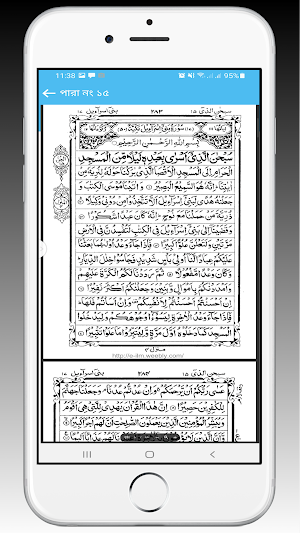 11:38
95%
পারা নং ১৫
بنی اسرآءیل ١٧
٢٨٣
سبحٰن الذی ١٥
بِسْمِ اللهِ الرَّحْمٰنِ الرَّحِیْمِ
سُبْحٰنَ الَّذِیْۤ اَسْرٰی بِعَبْدِهٖ لَیْلًا مِّنَ الْمَسْجِدِ
الْحَرَامِ اِلَی الْمَسْجِدِ الْاَقْصَا الَّذِیْ بٰرَكْنَا حَوْلَهٗ لِنُرِیَهٗ مِنْ
اٰیٰتِنَا ؕ اِنَّهٗ هُوَ السَّمِیْعُ الْبَصِیْرُ ۝ وَ اٰتَیْنَا مُوْسَی الْكِتٰبَ وَ
جَعَلْنٰهُ هُدًی لِّبَنِیْۤ اِسْرَآءِیْلَ اَلَّا تَتَّخِذُوْا مِنْ دُوْنِیْ وَكِیْلًا ۝
ذُرِّیَّةَ مَنْ حَمَلْنَا مَعَ نُوْحٍ ؕ اِنَّهٗ كَانَ عَبْدًا شَكُوْرًا ۝
وَ قَضَیْنَاۤ اِلٰی بَنِیْۤ اِسْرَآءِیْلَ فِی الْكِتٰبِ لَتُفْسِدُنَّ فِی الْاَرْضِ
مَرَّتَیْنِ وَ لَتَعْلُنَّ عُلُوًّا كَبِیْرًا ۝ فَاِذَا جَآءَ وَعْدُ اُوْلٰىهُمَا بَعَثْنَا
عَلَیْكُمْ عِبَادًا لَّنَاۤ اُولِیْ بَاْسٍ شَدِیْدٍ فَجَاسُوْا خِلٰلَ الدِّیَارِ ؕ
وَ كَانَ وَعْدًا مَّفْعُوْلًا ۝ ثُمَّ رَدَدْنَا لَكُمُ الْكَرَّةَ عَلَیْهِمْ
وَ اَمْدَدْنٰكُمْ بِاَمْوَالٍ وَّ بَنِیْنَ وَ جَعَلْنٰكُمْ اَكْثَرَ نَفِیْرًا ۝
اِنْ اَحْسَنْتُمْ اَحْسَنْتُمْ لِاَنْفُسِكُمْ وَ اِنْ اَسَاْتُمْ فَلَهَا ؕ
فَاِذَا جَآءَ وَعْدُ الْاٰخِرَةِ لِیَسُوْٓءٗا وُجُوْهَكُمْ وَ لِیَدْخُلُوا
الْمَسْجِدَ كَمَا دَخَلُوْهُ اَوَّلَ مَرَّةٍ وَّ لِیُتَبِّرُوْا مَا عَلَوْا تَتْبِیْرًا ۝
http://e-ilm.weebly.com/
بنی اسرآءیل ١٧
٢٨٤
سبحٰن الذی ١٥
عَسٰی رَبُّكُمْ اَنْ یَّرْحَمَكُمْ ۚ وَ اِنْ عُدْتُّمْ عُدْنَا ۘ وَ جَعَلْنَا جَهَنَّمَ
لِلْكٰفِرِیْنَ حَصِیْرًا ۝ اِنَّ هٰذَا الْقُرْاٰنَ یَهْدِیْ لِلَّتِیْ هِیَ اَقْوَمُ
وَ یُبَشِّرُ الْمُؤْمِنِیْنَ الَّذِیْنَ یَعْمَلُوْنَ الصّٰلِحٰتِ اَنَّ لَهُمْ اَجْرًا كَبِیْرًا ۝